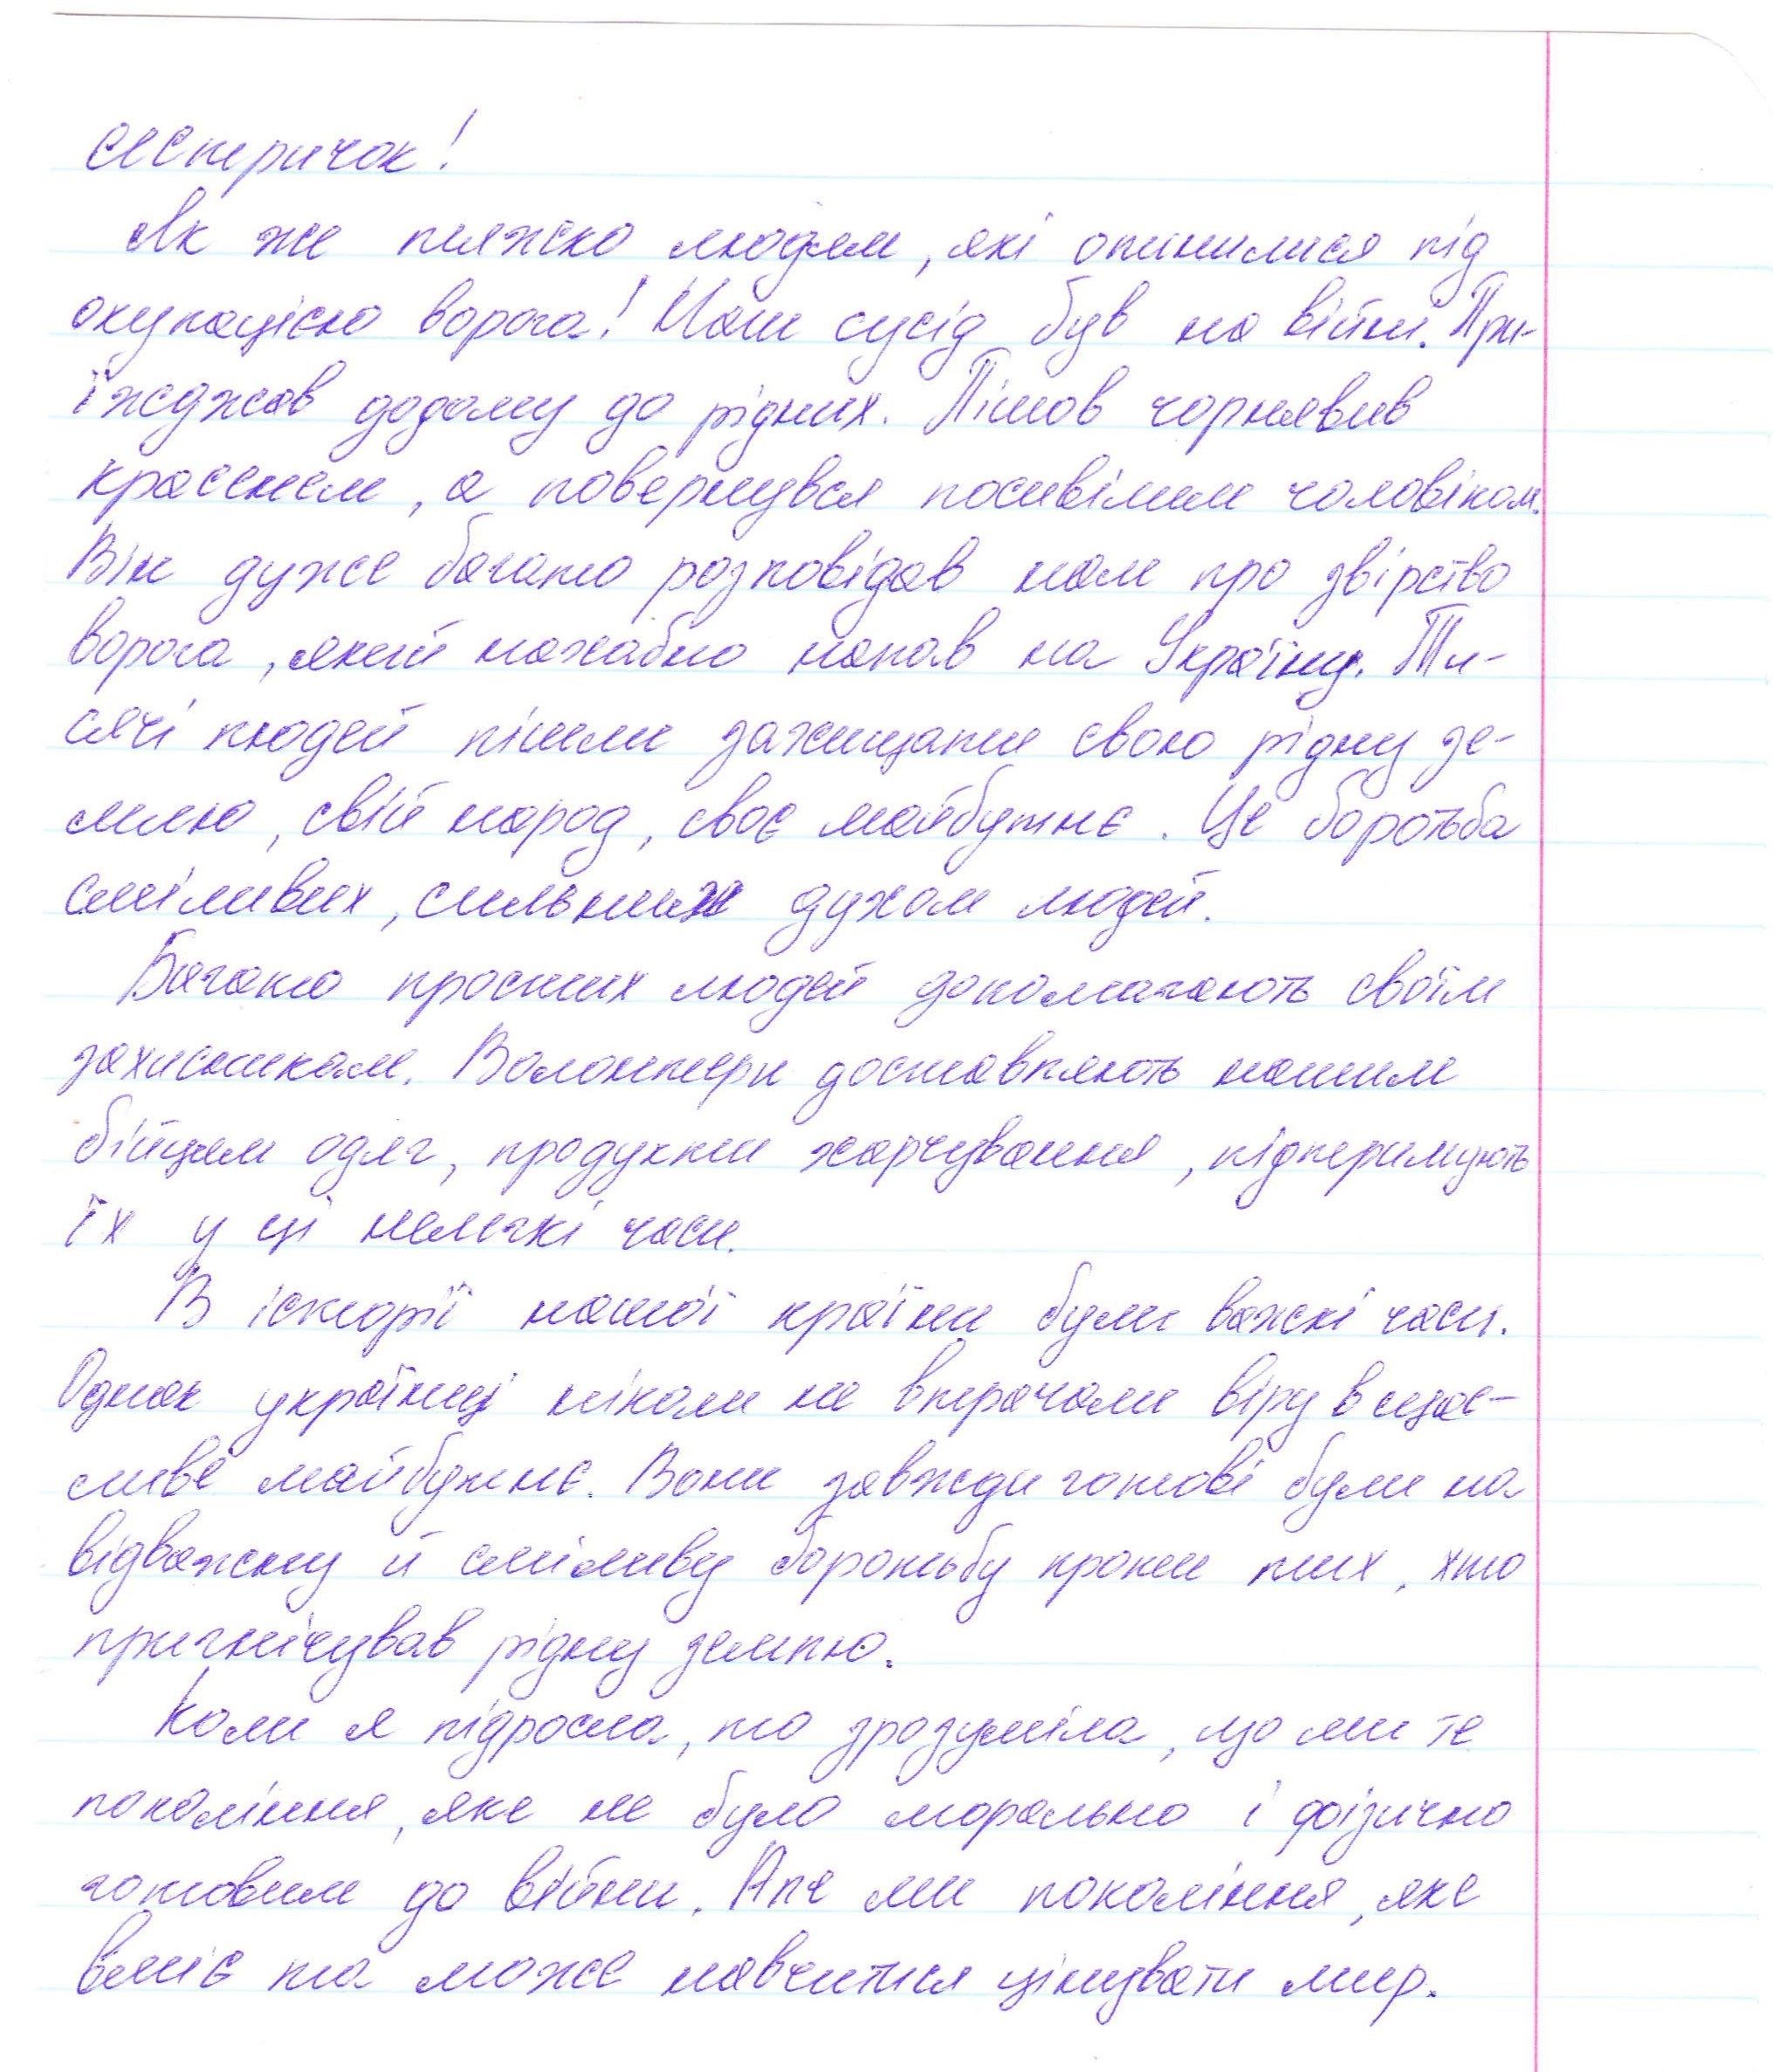 сестричок!
Як же тяжко людям, які опинилися під
окупацією ворога! Наш сусід був на війни. При-
їжджав додому до рідних. Пішов чорнявив
красенем, а повернувся посивілим чоловіком.
Він дуже багато розповідав нам про звірство
ворога, який нахабно напав на Україну. Ти-
сячі людей пішли захищати свою рідну зе-
млю, свій народ, своє майбутнє. Це боротьба
сміливих, сильних духом людей.
Багато простих людей допомагають своїм
захисникам. Волонтери доставляють нашим
бійцям одяг, продукти харчування, підтеримують
їх у ці нелегкі часи.
В історії нашої країни були важкі часи.
Однак українці ніколи не втрачали віру в щас-
ливе майбутнє. Вони завжди готові були на
відважну й сміливу боротьбу проти тих, хто
пригнічував рідну землю.
Коли я підросла, то зрозуміла, що ми те
покоління, яке не було морально і фізично
готовим до війни. Але ми покоління, яке
вміє та може навчитися цінувати мир.